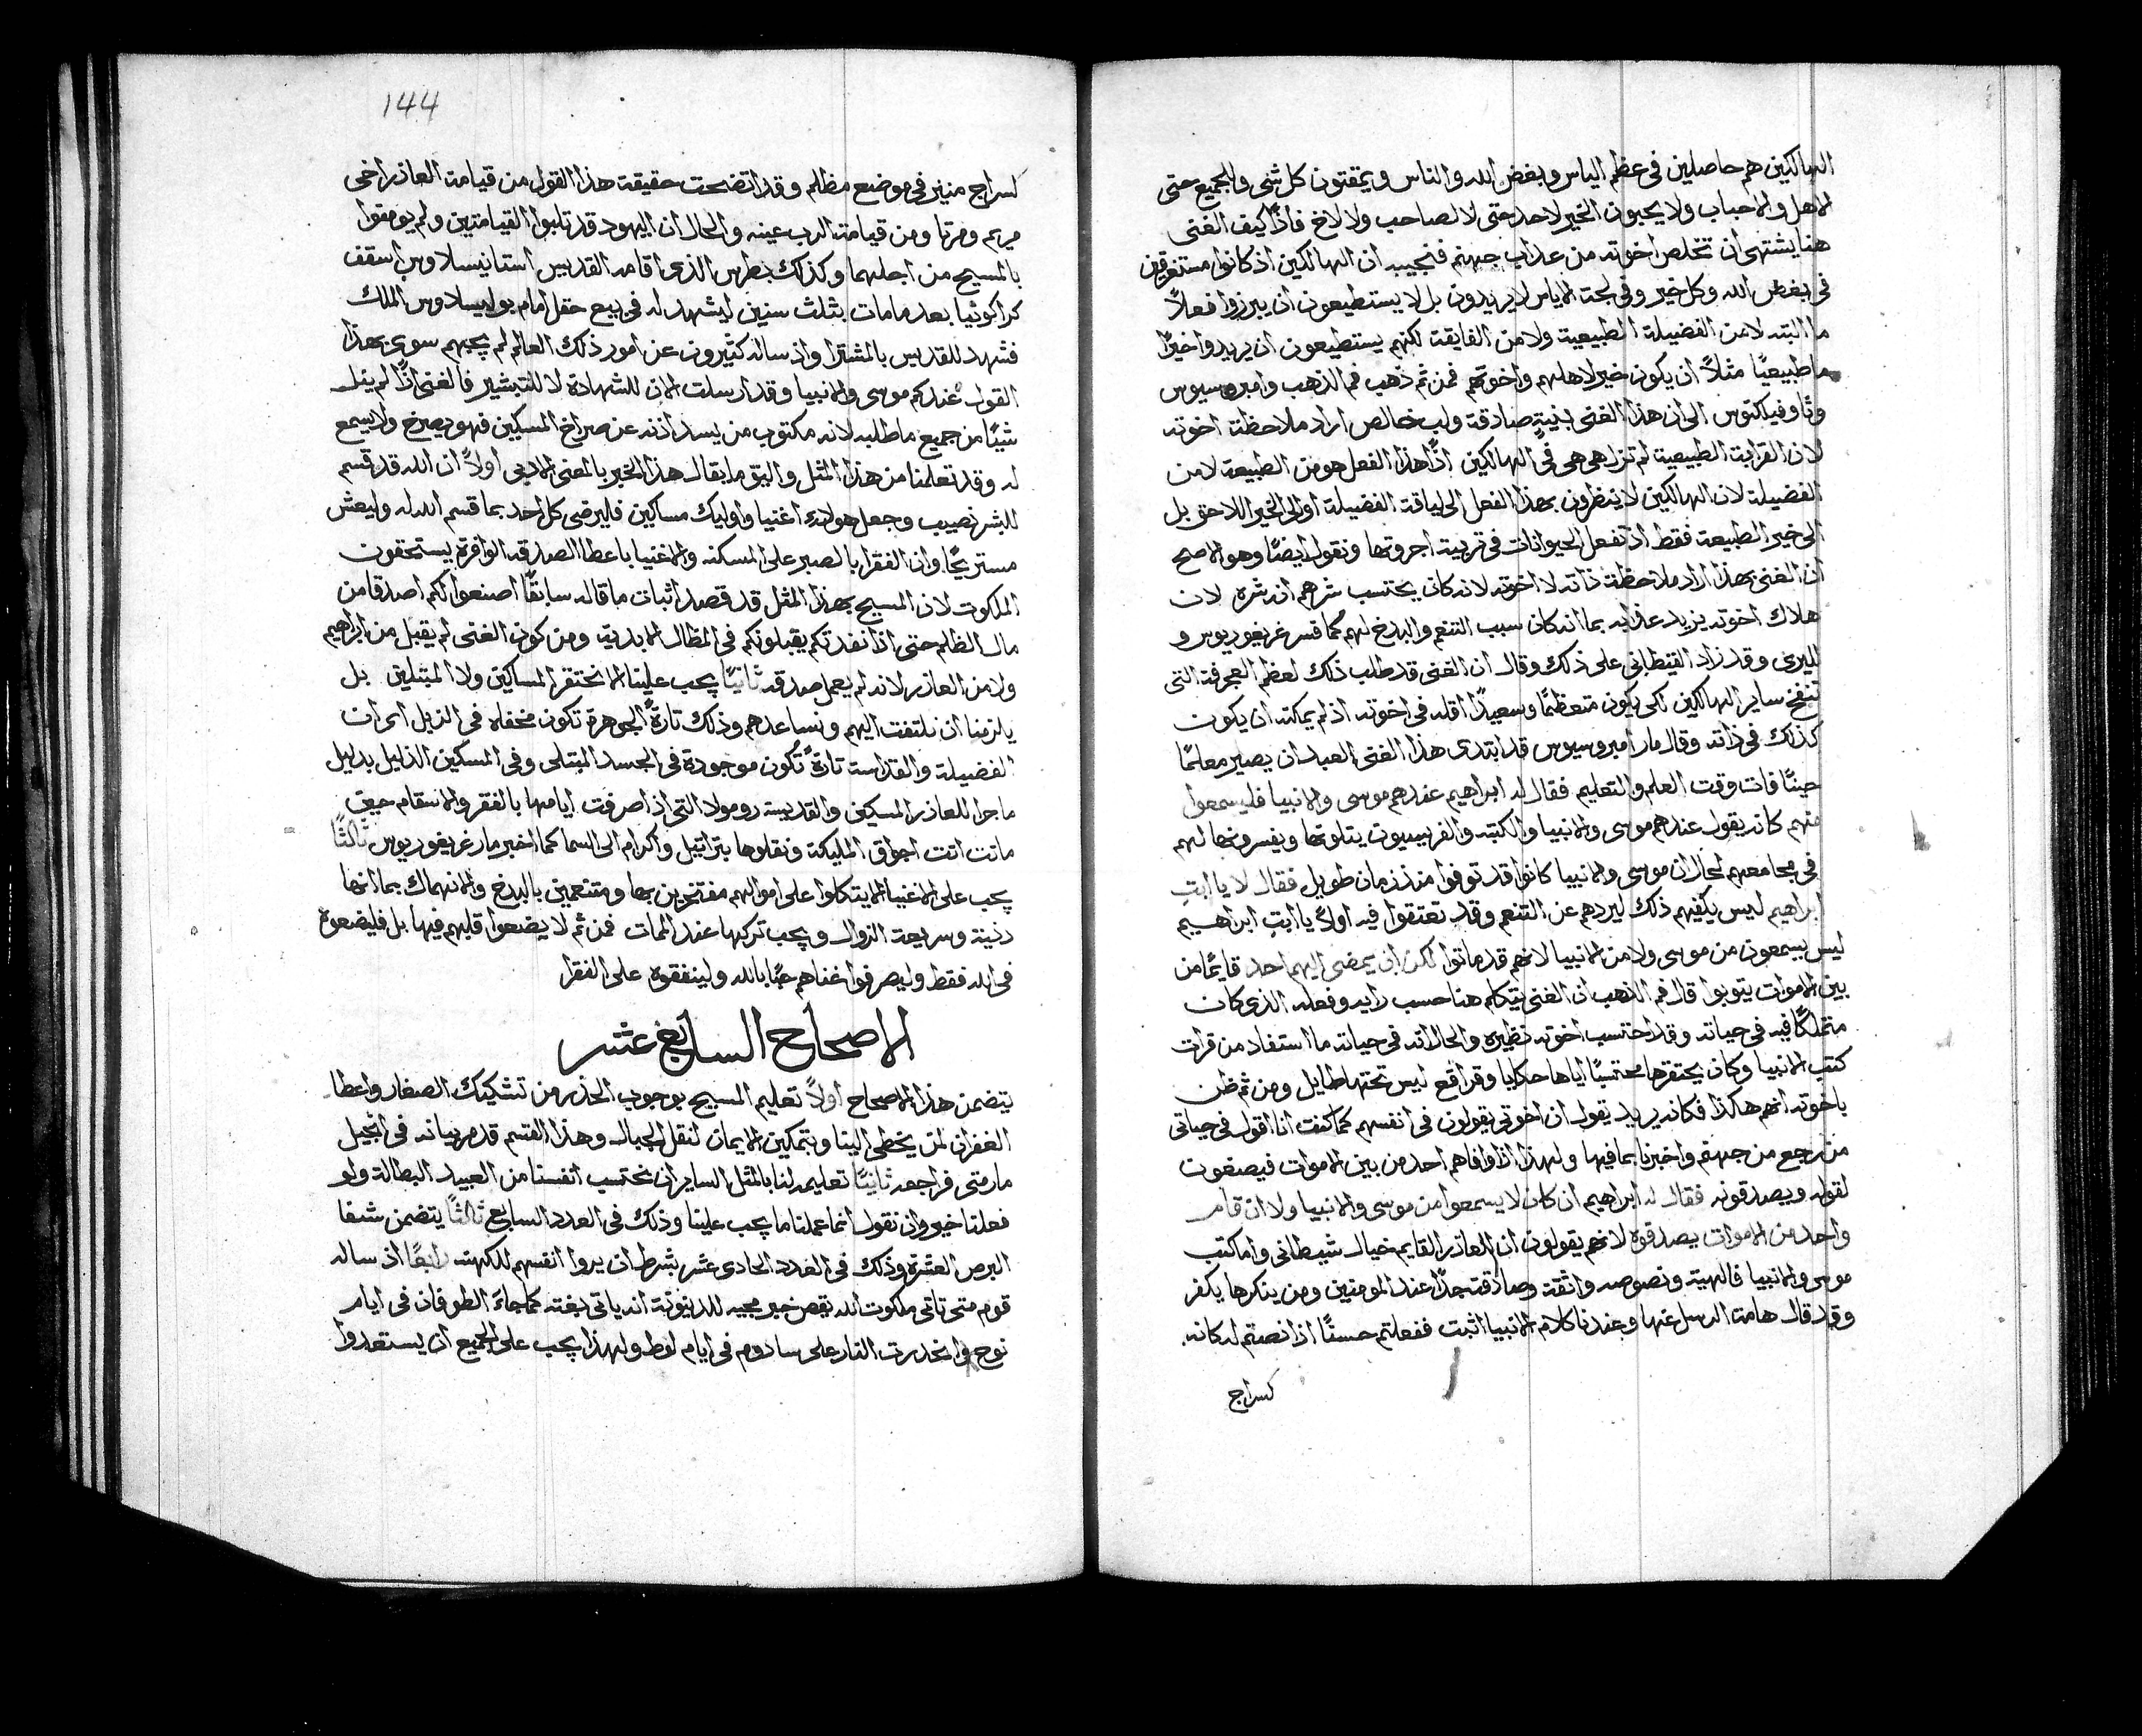 الهالكين هم حاصلين في عظم الياس وبغض الله والناس ويمقتون كل شي والجميع حتى
الاهل والاحباب ولا يحبون الخير لاحد حتى لا لصاحب ولا لاخ فاذًا كيف الغني
هنا يشتهي ان تخلص اخوته من عذاب جهنم فنجيب ان الهالكين اذ كانوا مستغرقين
في بغض الله وكل خير وفي لجة الاياس لا يريدون بل لا يستطيعون ان يبرزوا فعلاً
ما البته لا من الفضيلة الطبيعية ولا من الفايقة لكنهم يستطيعون ان يريدوا خيرًا
ما طبيعيًا مثلاً ان يكون خير لاهلهم واخوتهم فمن ثم ذهب فم الذهب وامبروسيوس
وثاوفيلكتوس الى ان هذا الغني بنيةٍ صادقة ولب خالص اراد ملاحظة اخوته
لان القرابة الطبيعية لم تزل هي هي في الهالكين اذًا هذا الفعل هو من الطبيعة لا من
الفضيلة لان الهالكين لا ينظرون بهذا الفعل الى لياقة الفضيلة او الى الخير اللاحق بل
الى خير الطبيعة فقط اذ تفعل الحيوانات في تربية اجروتها ونقول ايضًا وهو الاصح
ان الغني بهذا اراد ملاحظة ذاته لا اخوته لانه كان يحتسب شرهم انه شره لان
هلاك اخوته يزيد عذابه بما انه كان سبب التنعم والبدخ لهم كما فسر غريغوريوس و
لليري وقد زاد القيطاني على ذلك وقال ان الغني قد طلب ذلك لعظم العجرفة التي
تنفخ ساير الهالكين لكي يكون متعظمًا وسعيدًا اقله في اخوته اذ لم يمكنه ان يكون
كذلك في ذاته وقال مار امبروسيوس قد ابتدى هذا الغني العبد ان يصير معلمًا
حينًا فات وقت العلم والتعليم فقال له ابراهيم عندهم موسى والانبيا فليسمعوا
منهم كانه يقول عندهم موسى والانبيا والكتبه والفريسيون يتلونها ويفسرونها لهم
في مجامعهم لحال ان موسى والانبيا كانوا قد توفوا منذ زمان طويل فقال لا يا ابتِ
ابراهيم ليس يكفيهم ذلك ليردهم عن التنعم وقد تعتقوا فيه اولاً يا ابتِ ابراهيم
ليس يسمعون من موسى ولا من الانبيا لانهم قد ماتوا لكن ان يمضى اليهم احد قايمًا من
بين الاموات يتوبوا قال فم الذهب ان الغني يتكلم هنا حسب رايه وفعله الذي كان
متملكًا فيه في حياته وقد احتسب اخوته نظيره والحال انه في حياته ما استفاد من قرات
كتب الانبيا وكان يحتقرها محتسبًا اياها حكايا وقراقع ليس تحتها طايل ومن ثم ظن
باخوته انهم هكذا فكانه يريد يقول ان اخوتي يقولون في انفسهم كما كنت انا اقول في حياتي
من رجع من جهنم واخبرنا بما فيها ولهذا اذا وافاهم احد من بين الاموات فيصغون
لقوله ويصدقونه فقال له ابراهيم ان كان لا يسمعوا من موسى والانبيا ولا ان قام
واحد من الاموات يصدقوه لانهم يقولون ان العاذر القايم خيال شيطاني واما كتب
موسى والانبيا فالهية ونصوصه واثقة وصادقة جدًا عند المومنين ومن ينكرها يكفر
وقد قال هامة الرسل عنها وعندنا كلام الانبيا اثبت ففعلتم حسنًا اذا نصتم له كانه
كسراج
144
كسراج منير في موضع مظلم وقد اتضحت حقيقة هذا القول من قيامة العاذر اخي
مريم ومرتا ومن قيامة الرب عينه والحال ان اليهود قد ثلبوا القيامتين ولم يومنوا
بالمسيح من اجلهما وكذلك بطرس الذي اقامه القديس استانيسلاوس اسقف
كراكوثيا بعد ما مات بثلث سنين ليشهد له في بيع حقل امام بوليسلاوس الملك
فشهد للقديس بالمشترا واذ ساله كثيرون عن امور ذلك العالم لم يجبهم سوى بهذا
القول عندكم موسى والانبيا وقد ارسلت الان للشهادة لا للتبشير فالغني اذًا لم ينل
شيئًا من جميع ما طلبه لانه مكتوب من يسد اذنه عن صراخ المسكين فهو يصرخ ولا يسمع
له وقد تعلمنا من هذا المثل واليق ما يقال هذا الخبر بالمعنى الادبي اولاً ان الله قد قسم
للبشر نصيب وجعل هولاء اغنيا واوليك مساكين فليرضى كل احد بما قسم الله له وليعش
مستريحًا وان الفقرا بالصبر على المسكنه والاغنيا باعطا الصدقه الوافرة يستحقون
الملكوت لان المسيح بهذا المثل قد قصد اثبات ما قاله سابقًا اصنعوا لكم اصدقا من
مال الظلم حتى اذا نفدتكم يقبلونكم في المظال الابدية ومن كون الغني لم يقبل من ابراهيم
ولا من العاذر لانه لم يعمل صدقه ثانيًا يجب علينا الا نحتقر المساكين ولا المبتلين بل
يلزمنا ان نلتفت اليهم ونساعدهم وذلك تارةً الجوهرة تكون مخفاه في الزبل اى ان
الفضيلة والقداسة تارةً تكون موجودة في الجسد المبتلى وفي المسكين الذليل بدليل
ما جرا للعاذر المسكين والقديسه رومولا التي اذ اصرفت ايامها بالفقر والاسقام حين
ماتت اتت اجواق المليكة ونقلوها بتراتيل واكرام الى السما كما اخبر مار غريغوريوس ثالثًا
يجب على الاغنيا الا يتكلوا على اموالهم مفتخرين بها ومتنعمين بالبدخ والانهماك بما انها
دنية وسريعة الزوال ويجب تركها عند الممات فمن ثم لا يضعوا قلبهم فيها بل فليضعوه
في الله فقط وليصرفوا غناهم حبًا بالله ولينفقوه على الفقرا
الاصحاح السابع عشر
يتضمن هذا الاصحاح اولاً تعليم المسيح بوجوب الحذر من تشكيك الصغار واعطا
الغفران لمن يخطى الينا وبتمكين الايمان لنقل الجبال وهذا القسم قد مر بيانه في انجيل
مار متى فراجعه ثانيًا تعليمه لنا بالمثل الساير ان نحتسب انفسنا من العبيد البطالة ولو
فعلنا خير وان نقول انما عملنا ما يجب علينا وذلك في العدد السابع ثالثًا يتضمن شفا
البرص العشرة وذلك في العدد الحادي عشر بشرط ان يروا انفسهم للكهنه رابعًا اذ ساله
قوم متى تاتي ملكوت الله يقص خبر مجيه للدينونة انه ياتي بغته كما جاءَ الطوفان في ايام
نوح وانحدرت النار على سادوم في ايام لوط ولهذا يجب على الجميع ان يستعدوا